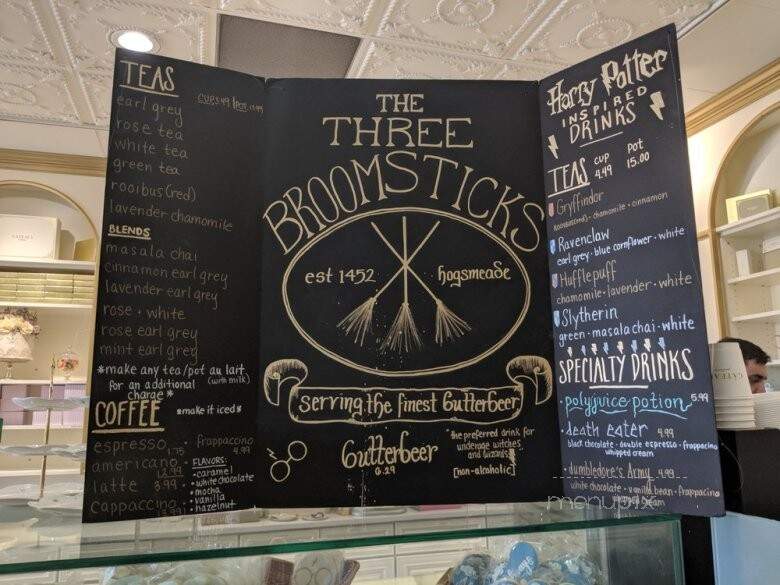 TEAS
CUP 4.49 Pot
earl grey
rose tea
white tea
green tea
rooibus (red)
lavender chamomile
BLENDS
masala chai
cinnamon earl grey
lavender earl grey
rose • white
rose earl grey
mint earl grey
*make any tea/pot au lait
for an additional (with milk)
charge*
COFFEE *make it iced*
espresso 1.75
americano
latte 3.99
cappaccino
frappaccino
4.99
FLAVORS:
•caramel
•white chocolate
•mocha
•vanilla
•hazelnut
THE
THREE
BROOMSTICKS
est 1452 hogsmeade
serving the finest butterbeer
butterbeer
6.29
the preferred drink for
underage witches
and wizards
[non-alcoholic]
Harry Potter
INSPIRED
DRINKS
TEAS CUP 4.49 Pot 15.00
Gryffindor
rooibus(red) • chamomile • cinnamon
Ravenclaw
earl grey • blue cornflower • white
Hufflepuff
chamomile • lavender • white
Slytherin
green • masala chai • white
SPECIALTY DRINKS
• polyjuice potion 5.99
• death eater 4.99
black chocolate • double espresso • frappacino
whipped cream
• dumbledore's Army 4.99
white chocolate • vanilla bean • frappacino
cream
menupix